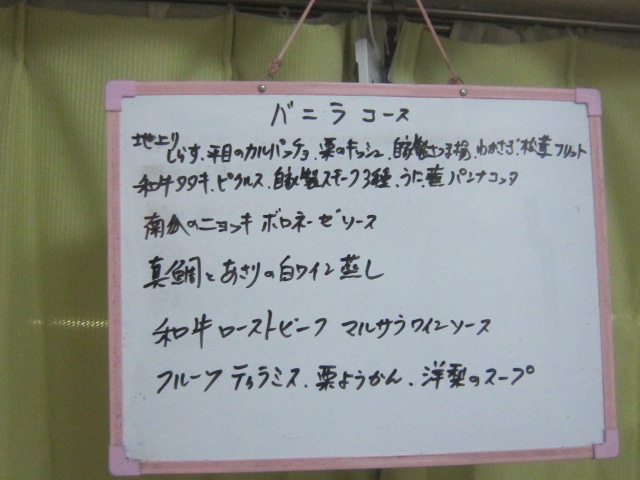 バニラコース
地上りしらす、平目のカルパッチョ、栗のキッシュ、自家製さつま揚、わかさぎ、松茸フリット
和牛タタキ、ピクルス、自家製スモーク3種、うに、パンナコッタ
南瓜のニョッキ ボロネーゼソース
真鯛とあさりの白ワイン蒸し
和牛ローストビーフ マルサラワインソース
フルーツティラミス、栗ようかん、洋梨のスープ